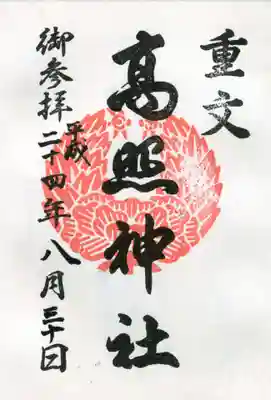 重文
髙照神社
御参拝
平成二十四年八月三十日